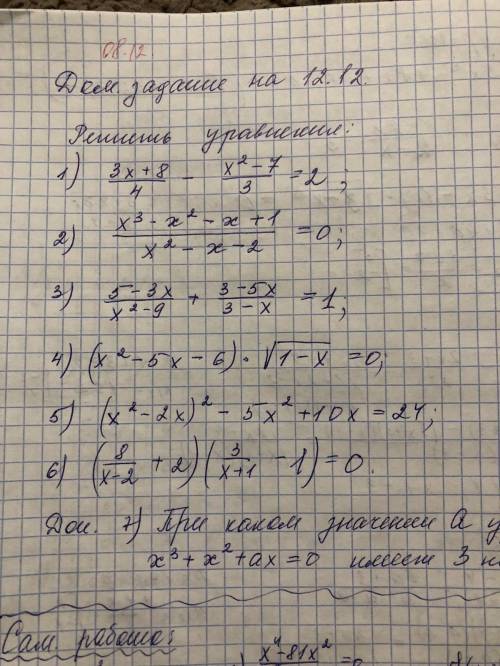 08.12.
Дом. задание на 12.12.
Решить уравнение:
1) (3x+8)/4 − (x²−7)/3 = 2;
2) (x³−x²−x+1)/(x²−x−2) = 0;
3) (5−3x)/(x²−9) + (3−5x)/(3−x) = 1;
4) (x²−5x−6)·√(1−x) = 0;
5) (x²−2x)²−5x²+10x = 24;
6) (8/(x−2) + 2)(3/(x+1) − 1) = 0.
Доп. 7) При каком значении a
x³+x²+ax=0 имеет 3
Сам. работа:
x⁴−81x²